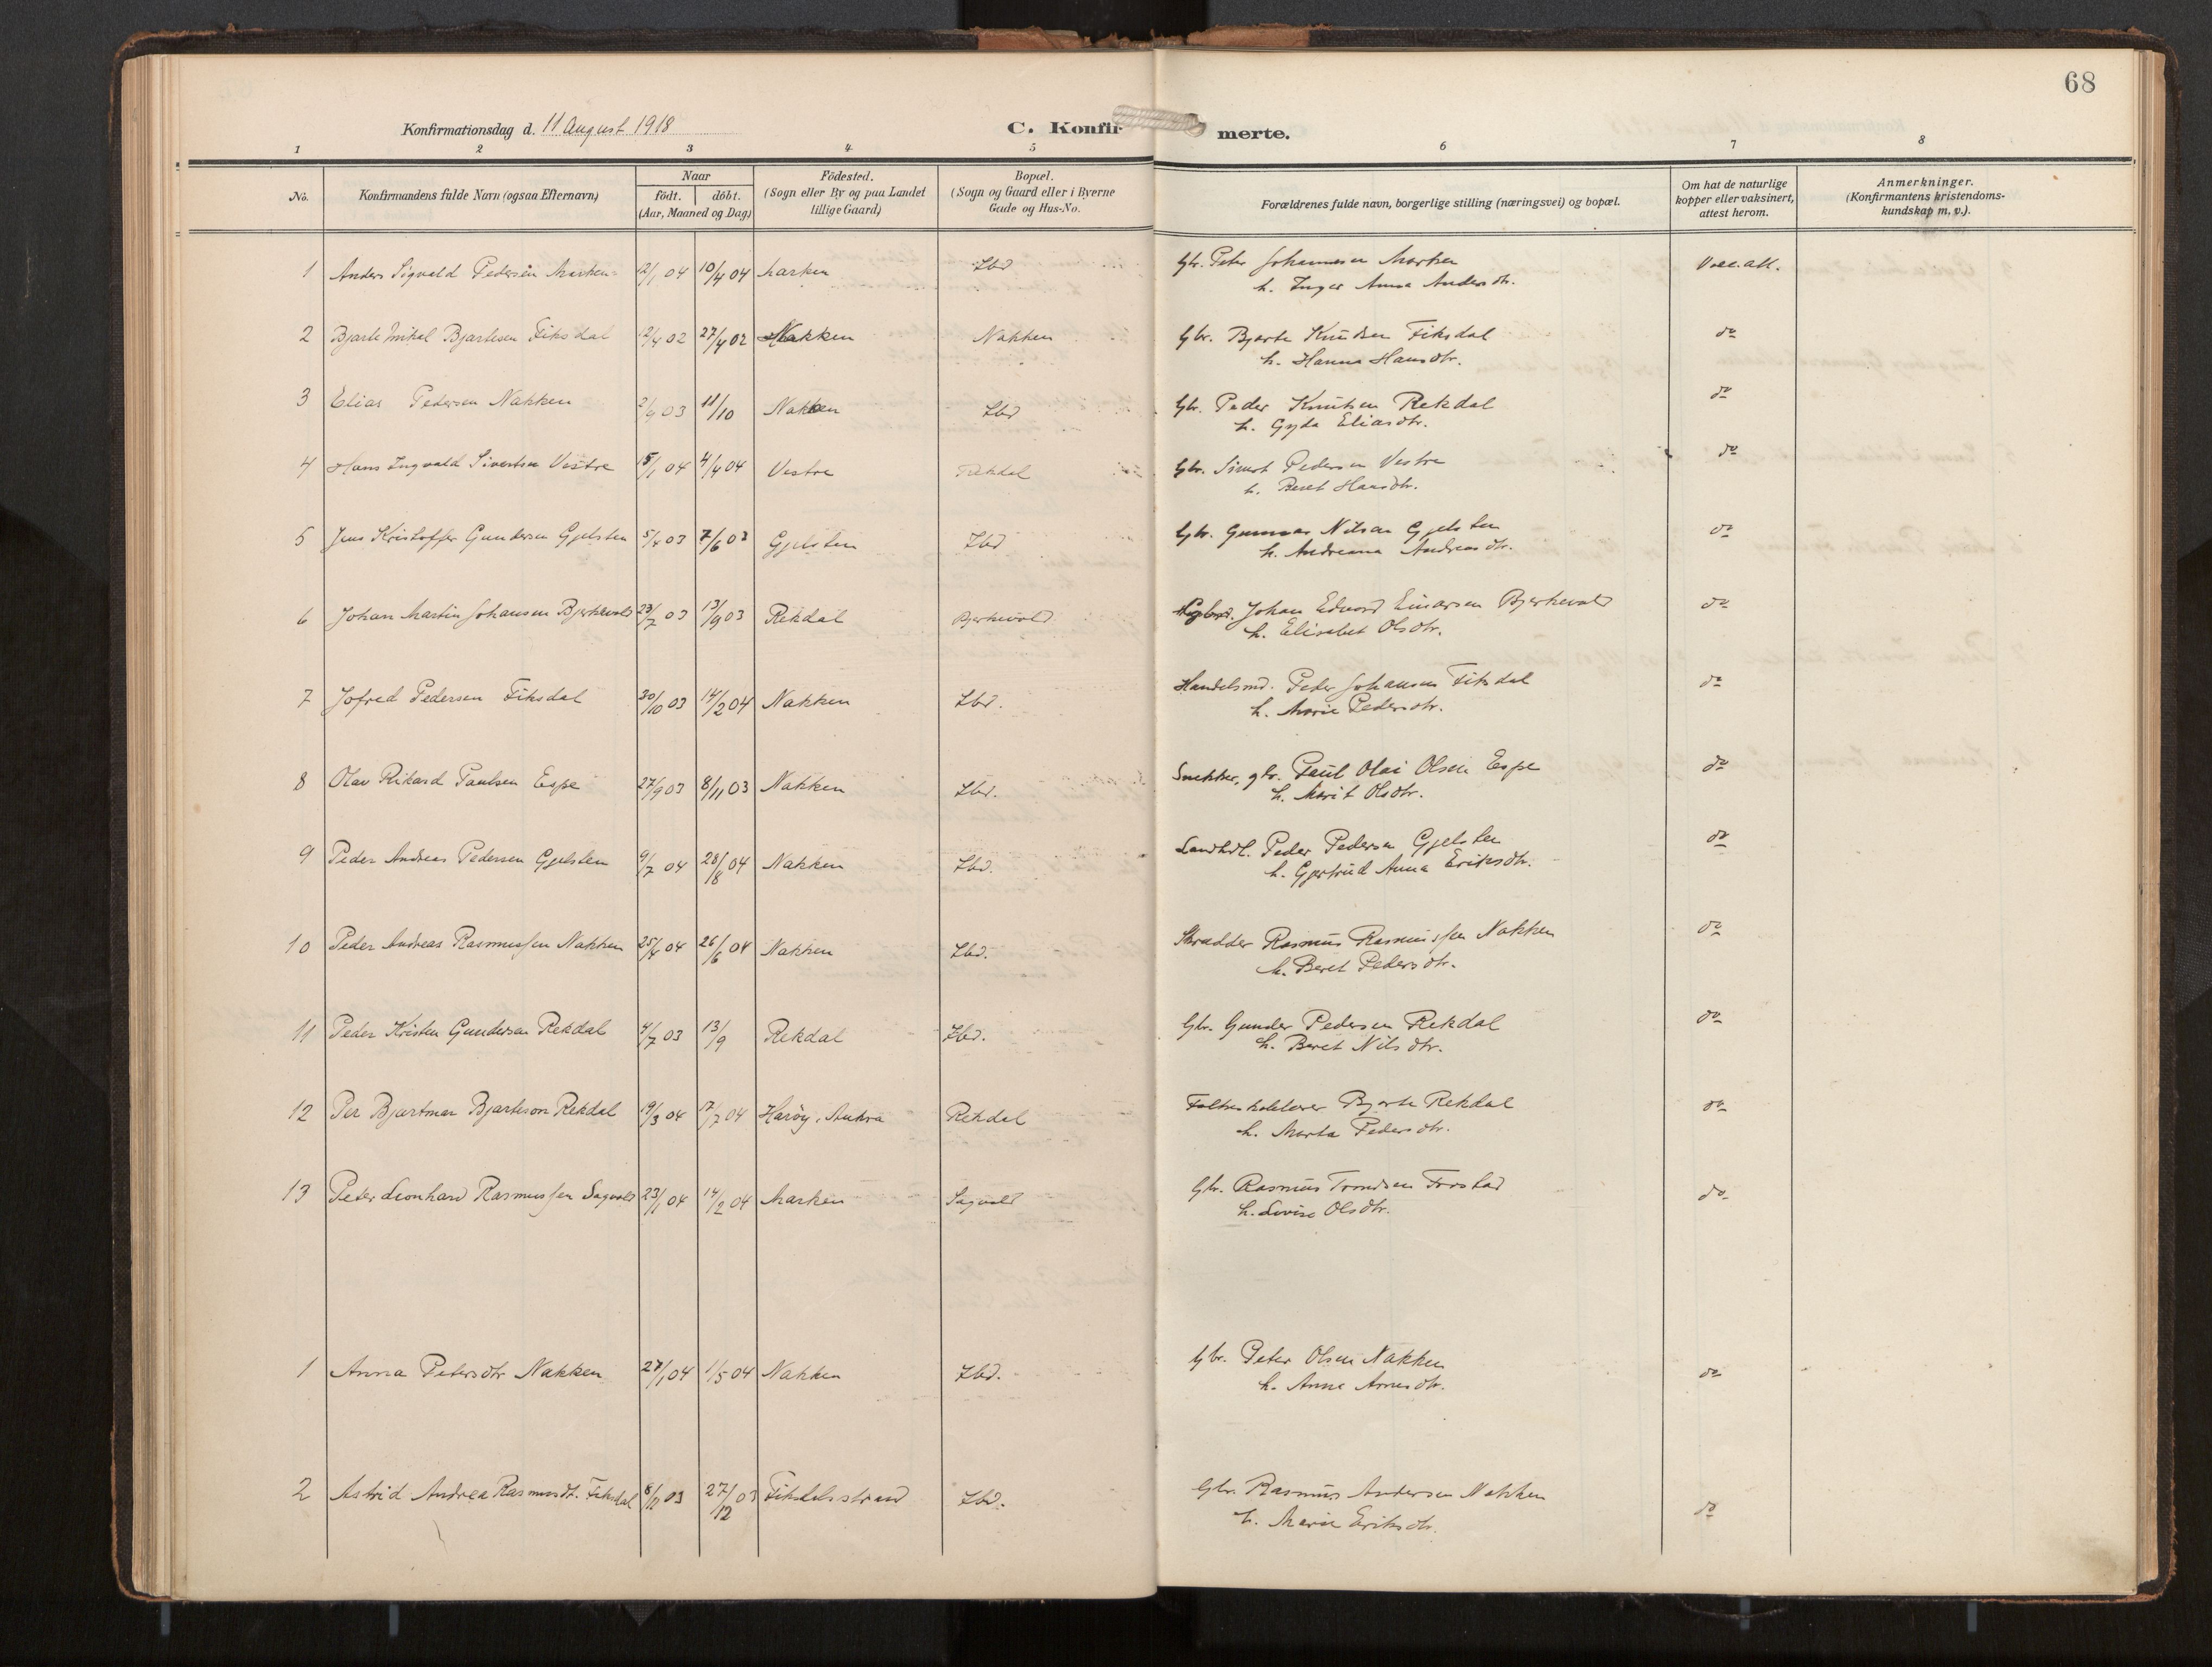 68
Konfirmationsdag d. 11 August 1918
C. Konfirmerte.
1 2 3 4 5 6 7 8
No.
Konfirmandens fulde Navn (ogsaa Efternavn)
Naar
födt. döbt.
(Aar, Maaned og Dag)
Födested.
(Sogn eller By og paa Landet
tillige Gaard)
Bopæl.
(Sogn og Gaard eller i Byerne
Gade og Hus-No.
Forældrenes fulde navn, borgerlige stilling (næringsvei) og bopæl.
Om hat de naturlige
kopper eller vaksinert,
attest herom.
Anmerkninger.
(Konfirmantens kristendoms-
kundskap m. v.).
1 Anders Sigvald Pedersen Marken 12/1 04 10/4 04 Marken Ibd Gbr. Peter Johannesen Marken Vacc. att.
h. Inger Anna Andersdtr.
2 Bjarte Mikal Bjartesen Fiksdal 12/4 02 27/4 02 Nakken Nakken Gbr. Bjarte Knudsen Fiksdal do
h. Hanna Hansdtr.
3 Elias Pedersen Nakken 2/9 03 11/10 Nakken Ibd Gbr. Peder Knutsen Rekdal do
h. Gyda Eliasdtr.
4 Hans Ingvald Sivertsen Vestre 15/1 04 4/4 04 Vestre Rekdal Gbr. Sivert Pedersen Vestre do
h. Beret Hansdtr.
5 Jens Kristoffer Gundersen Gjelsten 5/4 03 7/6 03 Gjelsten Ibd Gbr. Gunnar Nilsen Gjelsten do
h. Andreana Andreasdtr.
6 Johan Martin Johansen Bjerkevold 23/7 03 13/9 03 Rekdal Bjerkevold Johan Edvard Einarsen Bjerkevold do
h. Elisabet Olsdtr.
7 Jofred Pedersen Fiksdal 30/10 03 14/2 04 Nakken Ibd. Handelsmd. Peter Johansen Fiksdal do
h. Marie Pedersdtr.
8 Olav Rikard Paulsen Espe 27/9 03 8/11 03 Nakken Ibd. Snekker, gbr. Paul Olai Olsen Espe do
h. Marit Olsdtr.
9 Peder Andreas Pedersen Gjelsten 9/7 04 28/8 04 Nakken Ibd. Landhdl. Peder Pedersen Gjelsten do
h. Gjertrud Anna Eriksdtr.
10 Peder Andreas Rasmussen Nakken 25/4 04 26/6 04 Nakken Ibd. Skrædder Rasmus Rasmussen Nakken do
h. Beret Pedersdtr.
11 Peder Kristen Gundersen Rekdal 4/7 03 13/9 Rekdal Ibd. Gbr. Gunder Pedersen Rekdal do
h. Beret Nilsdtr.
12 Per Bjartmar Bjarteson Rekdal 19/3 04 17/7 04 Haröy, Aukra Rekdal Folkeskolelærer Bjarte Rekdal do
h. Marta Pedersdtr.
13 Peter Leonhard Rasmussen Sagvold 23/1 04 14/2 04 Marken Sagvold Gbr. Rasmus Trondsen Frostad do
h. Lovise Olsdtr.
1 Anna Petersdtr Nakken 27/1 04 1/5 04 Nakken Ibd. Gbr. Peter Olsen Nakken do
h. Anne Arnesdtr.
2 Astrid Andrea Rasmusdt. Fiksdal 8/12 03 27/12 03 Fiksdalsstrand Ibd. Gbr. Rasmus Andersen Nakken do
h. Marie Eriksdtr.